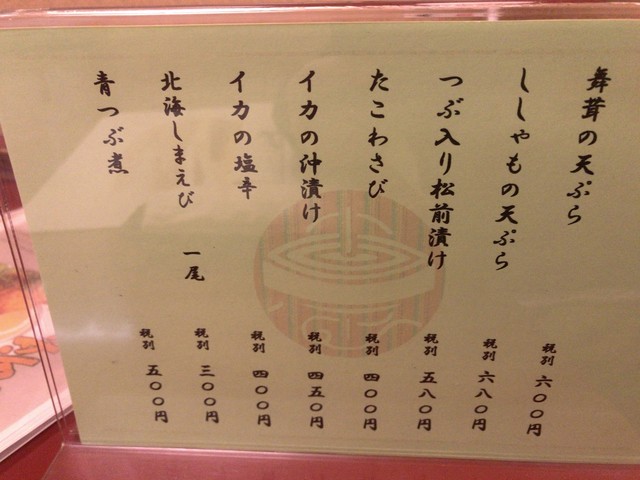 舞茸の天ぷら 税別 六〇〇円
ししゃもの天ぷら 税別 六八〇円
つぶ入り松前漬け 税別 五八〇円
たこわさび 税別 四〇〇円
イカの沖漬け 税別 四五〇円
イカの塩辛 税別 四〇〇円
北海しまえび 一尾 税別 三〇〇円
青つぶ煮 税別 五〇〇円